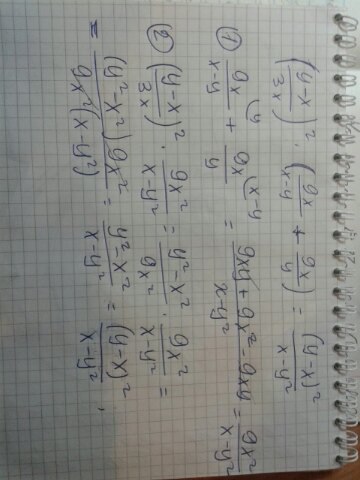 ((y-x)/3x)² · (9x/(x-y) + 9x/y) = (y-x)²/(x-y²)
① 9x/(x-y) + 9x/y = (9xy + 9x² - 9xy)/(x-y²) = 9x²/(x-y²)
② ((y-x)/3x)² · 9x²/(x-y²) = (y²-x²)/9x² · 9x²/(x-y²) =
= (y²-x²)9x²/9x²(x-y²) = (y²-x²)/(x-y²) = (y-x)²/(x-y²).